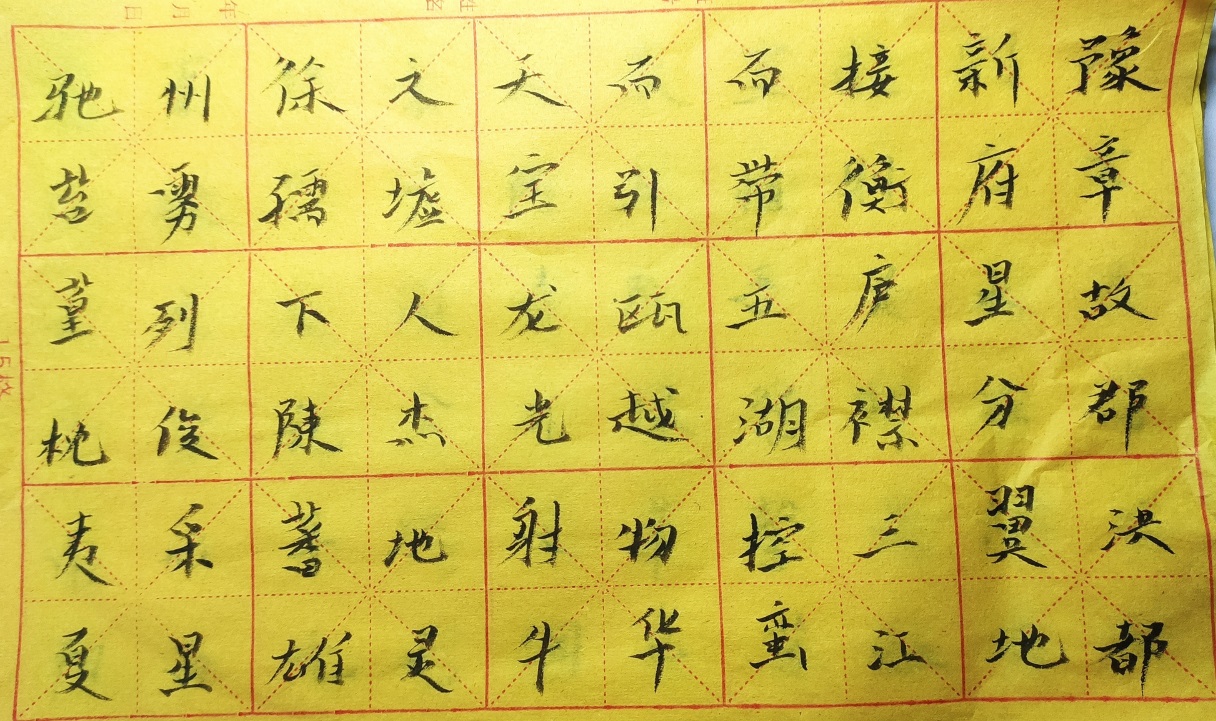 豫章故郡洪都
新府星分翼地
接衡庐襟三江
而带五湖控蛮
而引瓯越物华
天宝龙光射牛
文墟人杰地灵
徐孺下陳蕃雄
州雾列俊采星
驰枕夷夏